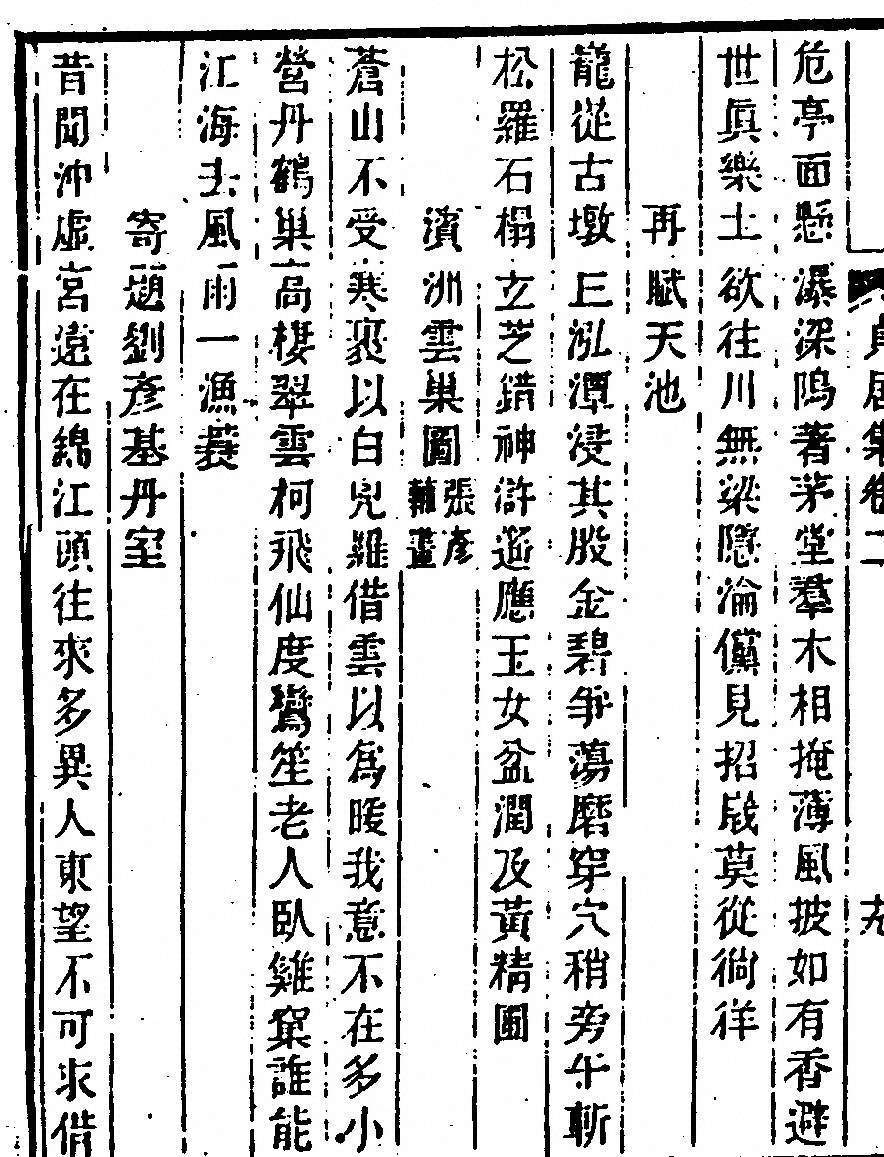 貞居集卷二
危亭面懸瀑深隖著茅堂羣木相掩薄風披如有香避
世眞樂土欲往川無梁隱淪儻見招歲莫從徜徉
再賦天池
龍從古墩巨泓潭浸其股金碧爭蕩磨穿穴稍旁午斬
松羅石榻玄芝錯神滸遥應玉女盆潤及黃精圃
濱洲雲巢圖張彥輔畫
蒼山不受寒裹以白兜羅借雲以爲暖我意不在多小
營丹鶴巢高棲翠雲柯飛仙度鸞笙老人臥雞窠誰能
江海去風雨一漁蓑
寄題劉彥基丹室
昔聞沖虛宮遠在錦江頭往來多異人東望不可求借